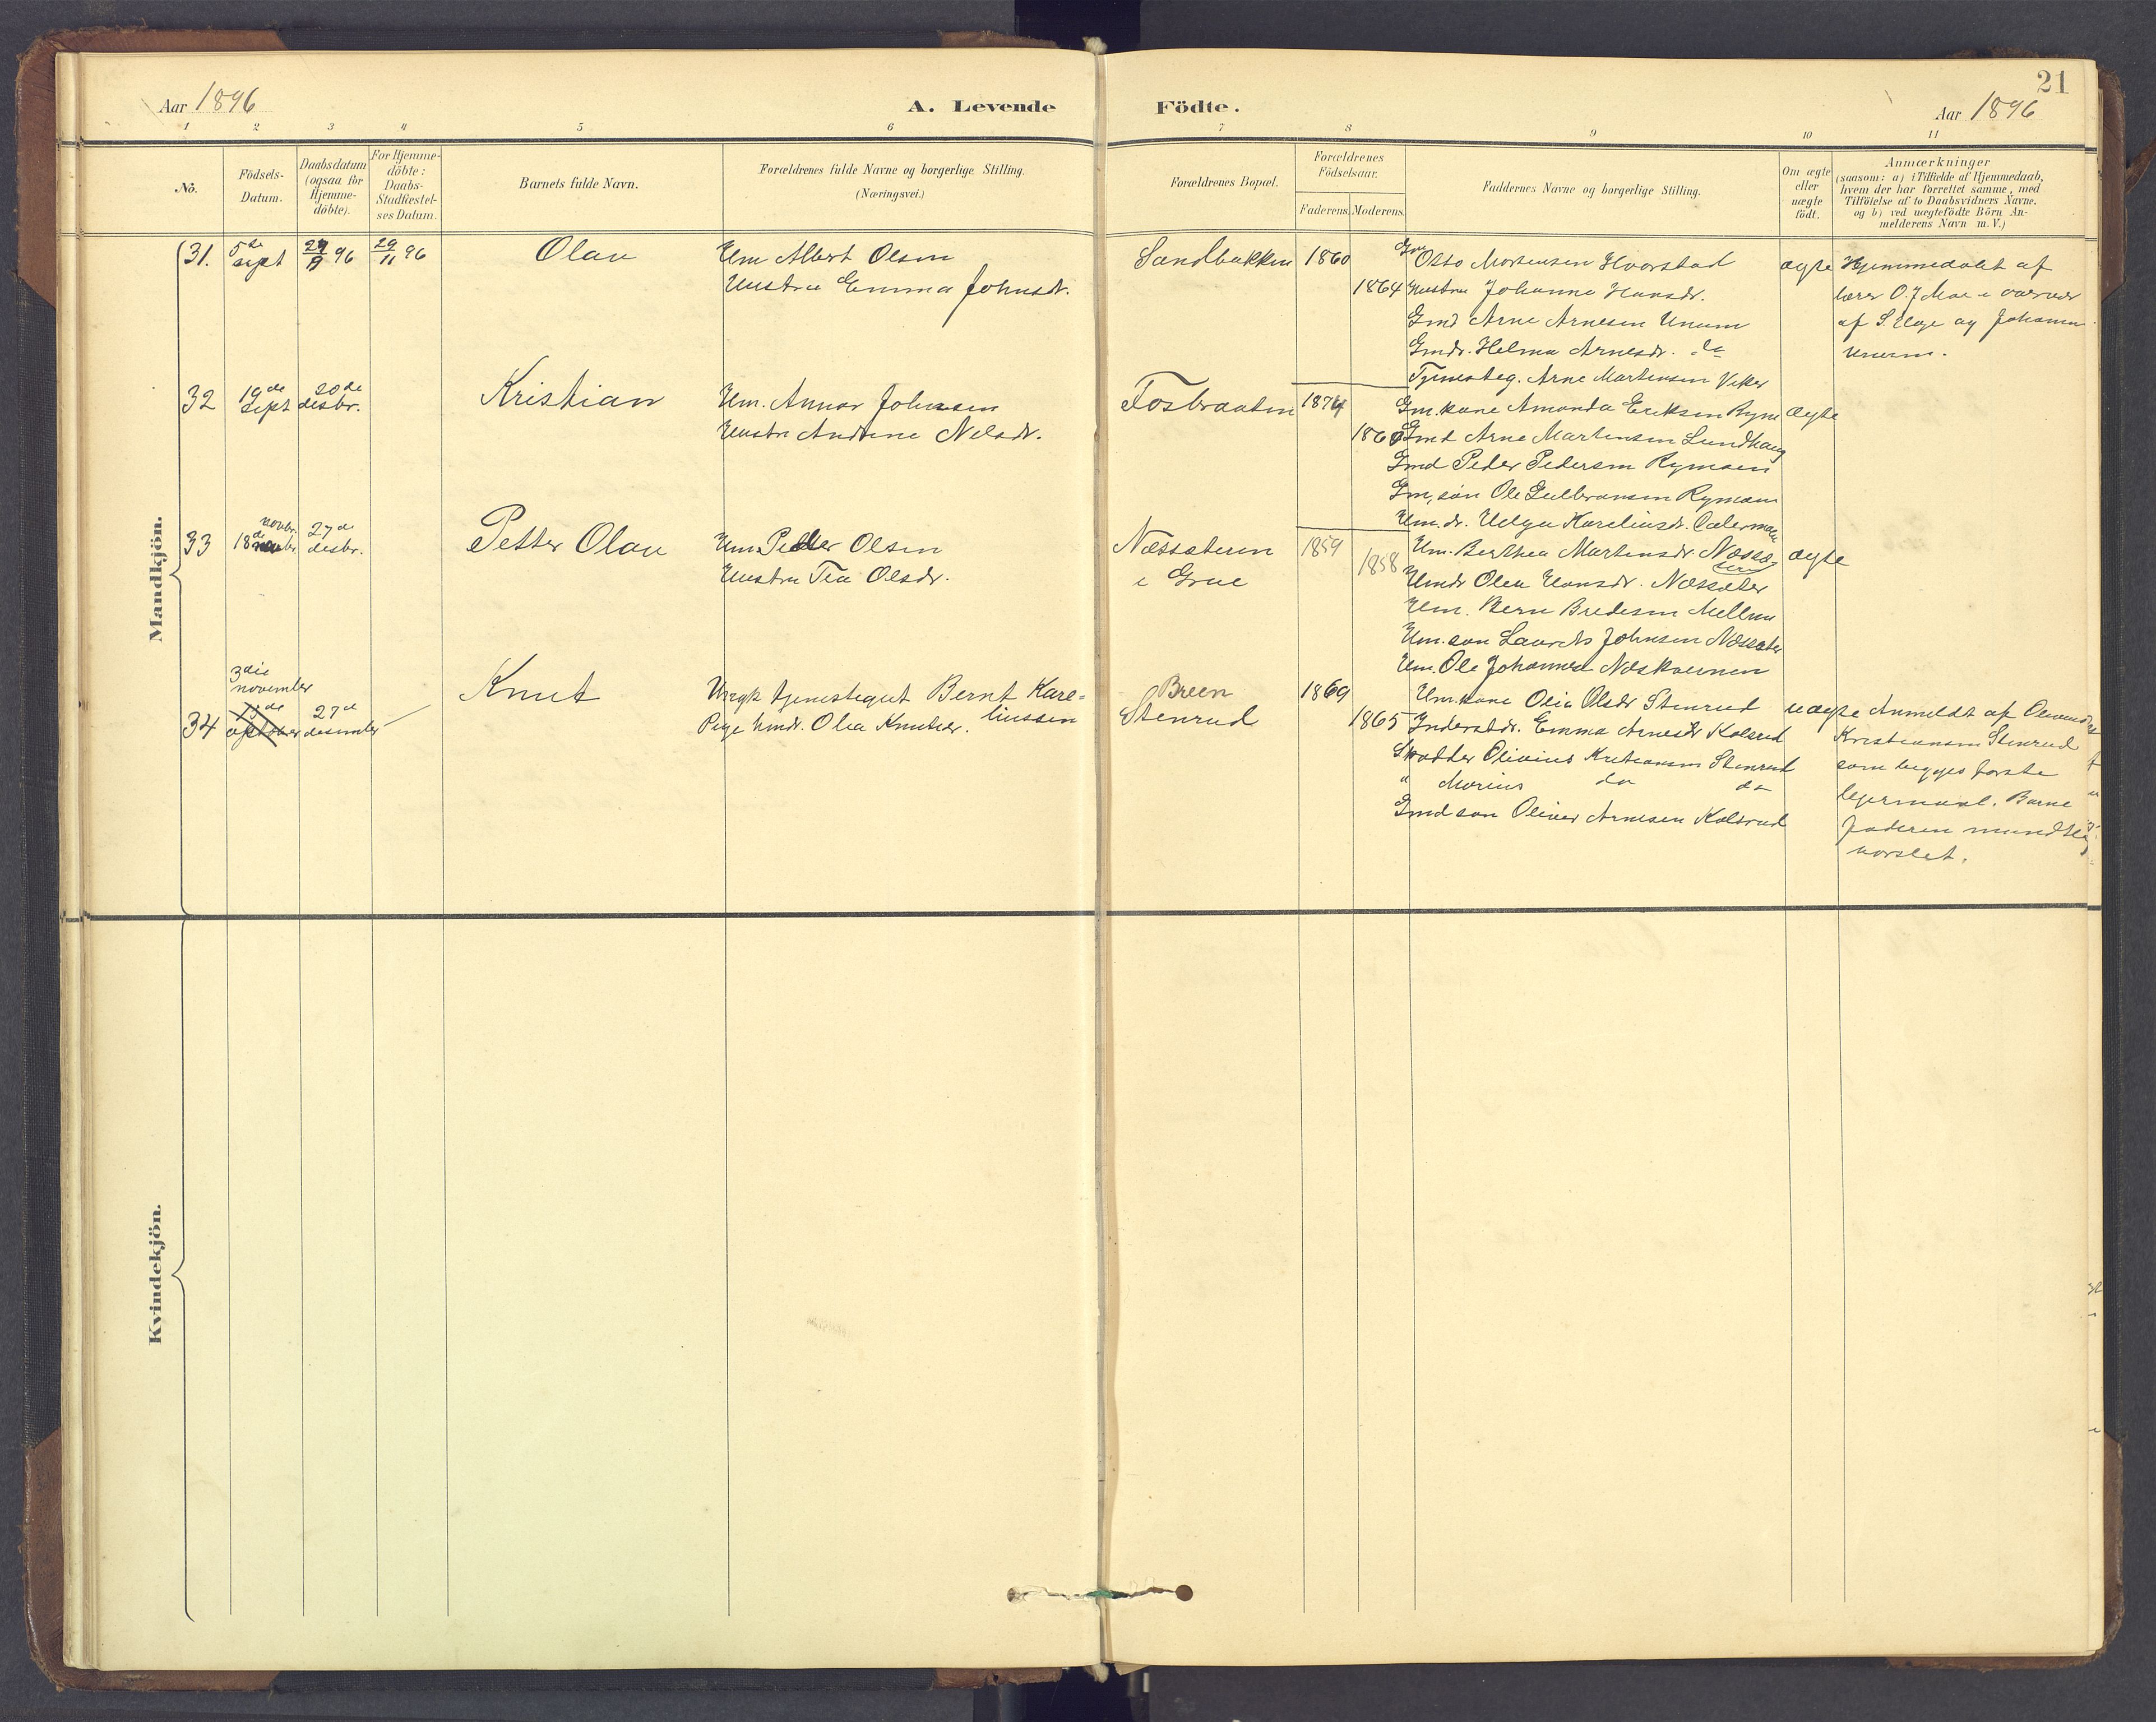 21
Aar 1896
A. Levende Födte.
Aar 1896
1 2 3 4 5 6 7 8 9 10 11
No.
Födsels-
Datum.
Daabsdatum
(ogsaa for
Hjemme-
döbte).
For Hjemme-
döbte:
Daabs-
Stadfæstel-
ses Datum.
Barnets fulde Navn.
Forældrenes fulde Navne og borgerlige Stilling.
(Næringsvei.)
Forældrenes Bopæl.
Forældrenes
Födselsaar.
Faderens. Moderens.
Faddernes Navne og borgerlige Stilling.
Om ægte
eller
uægte
födt.
Anmærkninger
(saasom: a) i Tilfælde af Hjemmedaab,
hvem der har forrettet samme, med
Tilföielse af to Daabsvidners Navne.
og b) ved uægtefödte Börn An-
melderens Navn m.V.)
Mandkjön.
31.
5te sept
96
29/11 96
Olav
Um Albert Olsen
Hustru Emma Johnsdr.
Sandbakken
1860
1864
Gm Otto Mortensen Hvorstad
Hustru Johanna Hansdr.
Gmd Arne Arnesen Unum
Gmdr. Helma Arnesdr. do
Tjenesteg. Arne Martinsen Viker
ægte
Hjemmedøbt af
lærer O. J. Moe i overvær
af S. Uge og Johanna
Unum.
32
19de sept
20de desbr.
Kristian
Um. Annar Johnsen
Hustru Andrine Nelsdr.
Fosbraaten
1874
1860
Gm. kone Amanda Eriksen Rym
Gmd Arne Martinsen Lundhaug
Gmd Peder Pedersen Rymoen
Gm, søn Ole Gulbransen Rymoen
Um. dr. Helga Kareliusdr.
ægte
33
novbr.
18de
27de
desbr.
Petter Olav
Um. Petter Olsen
Hustru Tea Olsdr.
Næssæteren
i Grue
1859
1858
Um. Berthea Martinsdr. Næssæ-
teren
Umdr Olea Hansdr. Næssæter
Um. Bern Bredesen Mellem
Um. søn Laurits Johnsen Næssæter
Um. Ole Johannes Næskvernen
ægte
34
3die
november
11de
oktober
27de
desember
Knut
Ungk tjenestegut Bernt Kare-
liussen
Pige Umdr. Olea Knutsdr.
Breen
Stenrud
1869
1865
Um. kone Olia Olsdr Stenrud
Inderstdr. Emma Arnesdr Kolsrud
Skodder Olivius Kristiansen Stenrud
" Marius do do
Gmd søn Oliver Arnesen Kolsrud
uægte
Anmeldt af
Kristiansen Stenrud
som begges første
leiermaal. Barne
faderen mundtlig
varslet.
Kvindekjön.